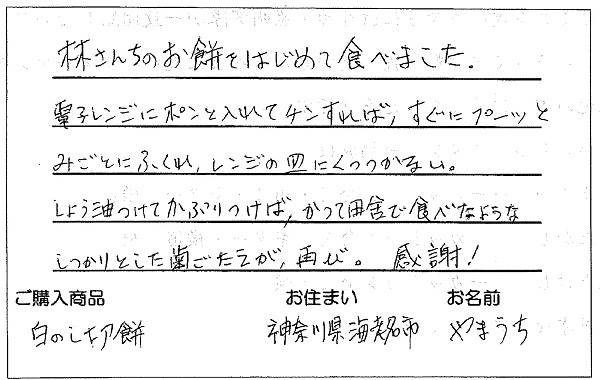 林さんちのお餅をはじめて食べました.
電子レンジにポンと入れてチンすれば,すぐにプーッと
みごとにふくれ,レンジの皿にくっつかない。
しょう油つけてかぶりつけば,かつて田舎で食べたような
しっかりとした歯ごたえが,再び。 感謝!
ご購入商品 お住まい お名前
白のし切餅 神奈川県海老名市 やまうち